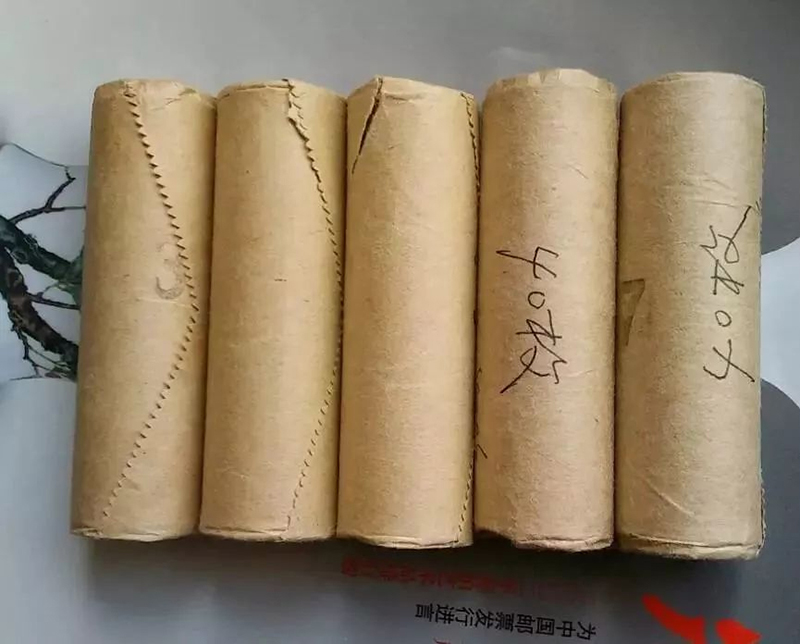 3
40枚
7
40枚
为中国邮票发行进言